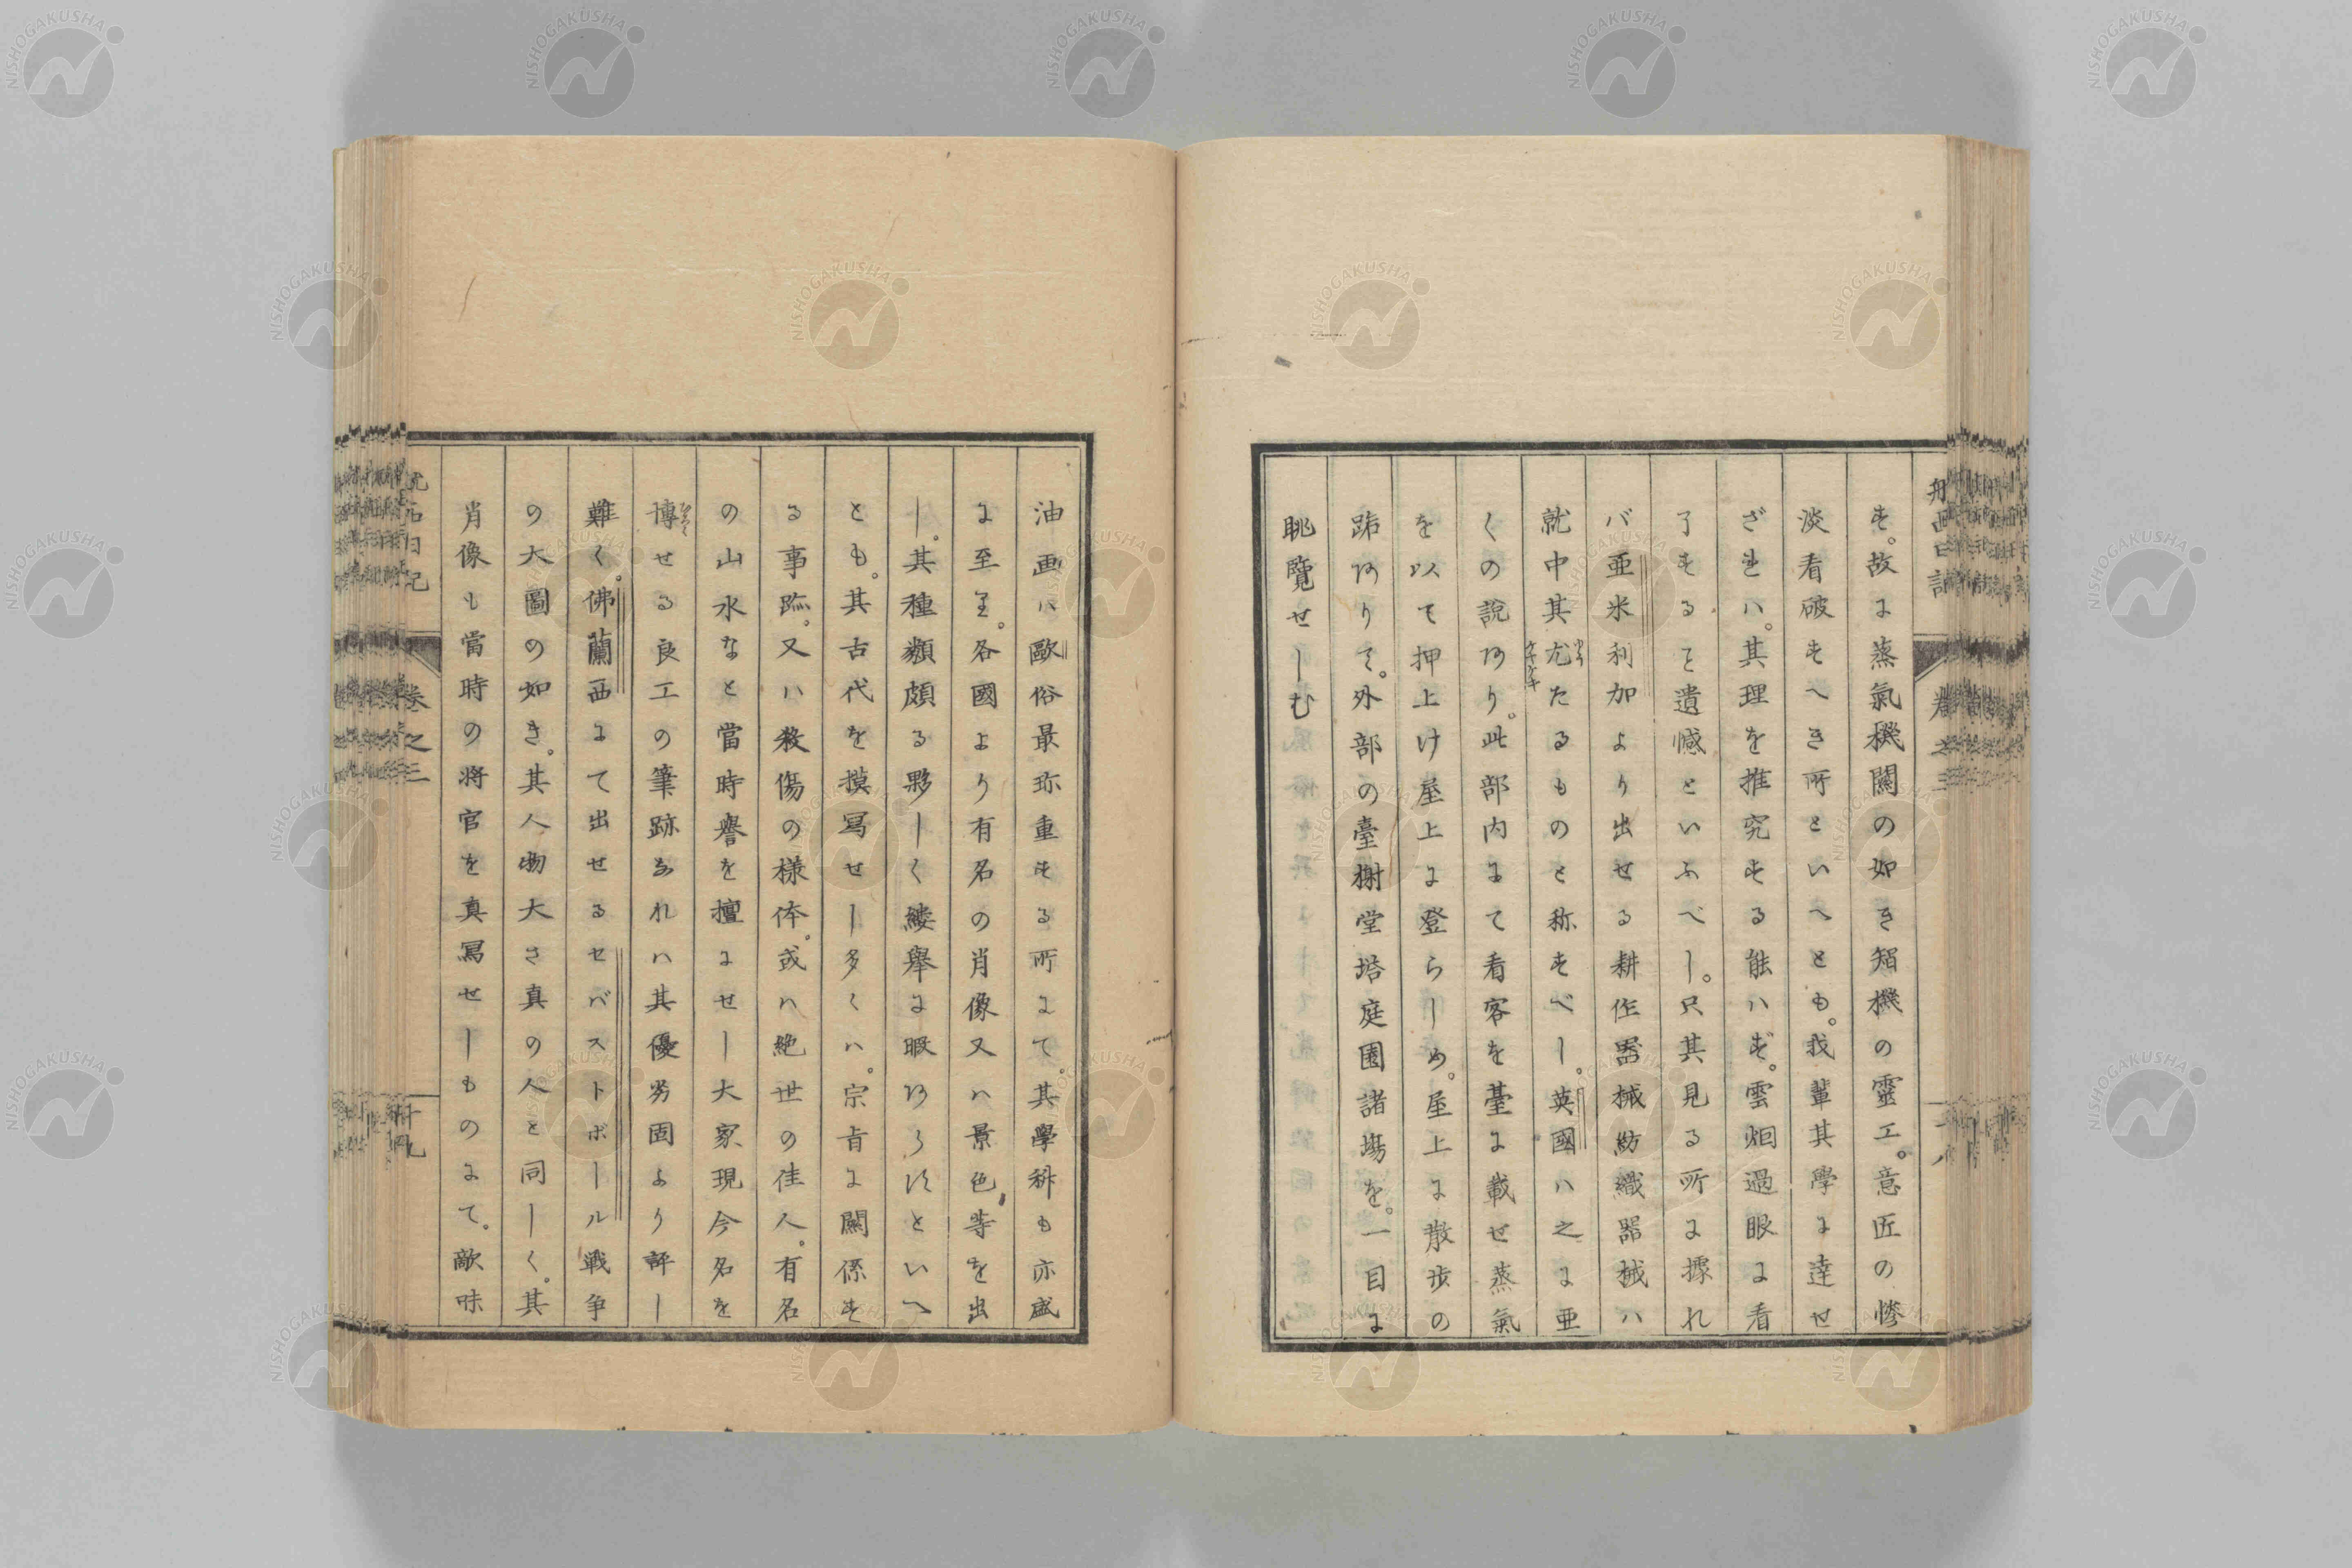 す。故に蒸氣機關の如き知機の靈工。意匠の惨
淡看破すへき所といへとも。我輩其學に達せ
ざれハ。其理を推究する能ハず。雲烟過眼に看
了するを遺憾といふべし。只其見る所に據れ
バ亜米利加より出せる耕作器械紡織器械ハ
就中其尤たるものと称すべし。英國ハ之に亜
くの説あり。此部内にて看客を臺に載せ蒸氣
を以て押上け屋上に登らしめ。屋上に散歩の
跡ありて。外部の臺榭堂塔庭園諸場を。一目に
眺覽せしむ
油画ハ歐俗最珎重する所にて。其學科も亦盛
に至る。各國より有名の肖像又ハ景色等を出
し。其種類頗る夥しく縷舉に暇あらすといへ
とも。其古代を摸冩せし多くハ。宗旨に關係す
る事跡。又ハ殺傷の様体。或ハ絶世の佳人。有名
の山水なと當時譽を擅にせし大家現今名を
博せる良工の筆跡なれハ其優劣固より評し
難く。佛蘭西にて出せるセバストボール戦争
の大圖の如き。其人物大さ真の人と同しく。其
肖像も當時の将官を真冩せしものにて。敵味
航西日記
巻之三
十九